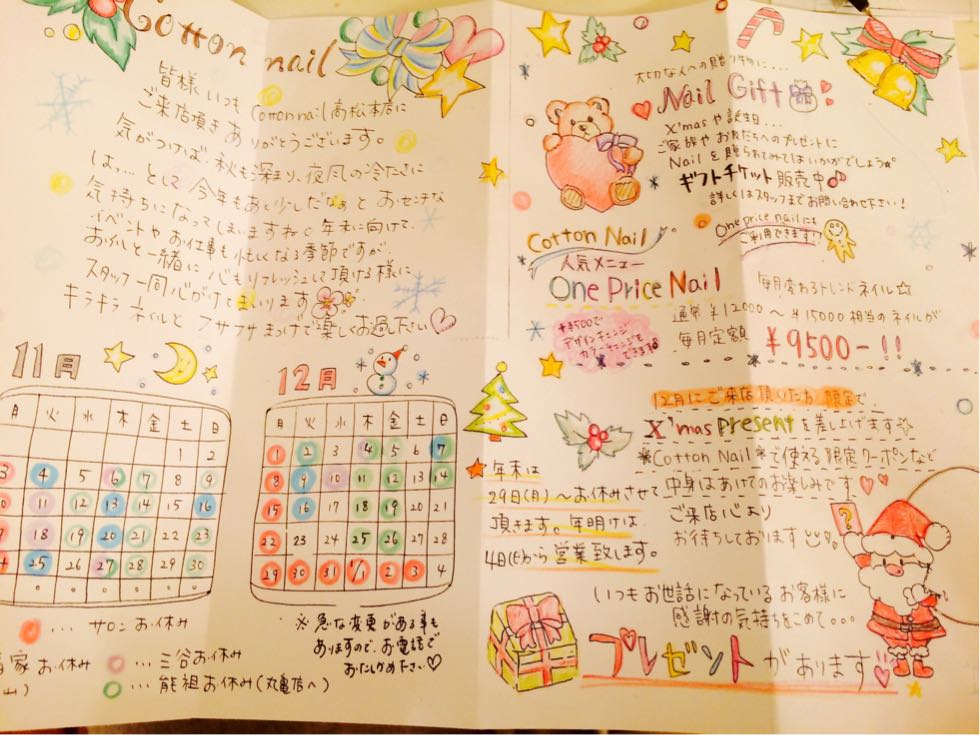 Cotton nail
皆様いつもCotton nail高松本店に
ご来店頂きありがとうございます。
気がつけば、秋も深まり、夜風の冷たさに
はっ…として今年もあと少しだなぁとおセンチな
気持ちになってしまいますね。年末に向けて、
イベントやお仕事も忙しくなる季節ですが、
おイルと一緒に心もリフレッシュして頂ける様に
スタッフ一同心がけてまいります
キラキラネイルとフサフサまつげで楽しくお過ごし下さい♡
11月
月 火 水 木 金 土 日
1 2
3 4 5 6 7 8 9
11 12 13 14 15 16
18 19 20 21 22 23
25 26 27 28 29 30
12月
月 火 水 木 金 土 日
1 2 3 4 5 6 7
8 9 10 11 12 13 14
15 16 17 18 19 20 21
22 23 24 25 26 27 28
29 30 31 1/1 2 3 4
… サロンお休み
家お休み
… 三谷お休み
山)
… 能祖お休み(丸亀店へ)
※急な変更がある事も
ありますので、お電話で
おたしかめ下さい♡
大切な人への贈り物に…
Nail Gift
X'masや誕生日...
ご家族やお友だちへのプレゼントに
Nailを贈られてみてはいかがでしょうか。
ギフトチケット販売中♪
詳しくはスタッフまでお問い合わせ下さい!
One price nailにも
ご利用できます!
Cotton Nail
人気メニュー
One Price Nail
+¥500で
デザインチェンジ
カラーチェンジも
できます
毎月変わるトレンドネイル☆
通常¥12000〜¥15000相当のネイルが
毎月定額 ¥9500-!!
12月にご来店頂いた方限定で
X'mas presentを差し上げます☆
*Cotton Nail*で使える限定クーポンなど
中身はあけてのお楽しみです♡
ご来店心より
お待ちしております
★年末は
29日(月)〜お休みさせて
頂きます。年明けは
4日(日)から営業致します。
?
いつもお世話になっているお客様に
感謝の気持ちをこめて…
プレゼントがあります